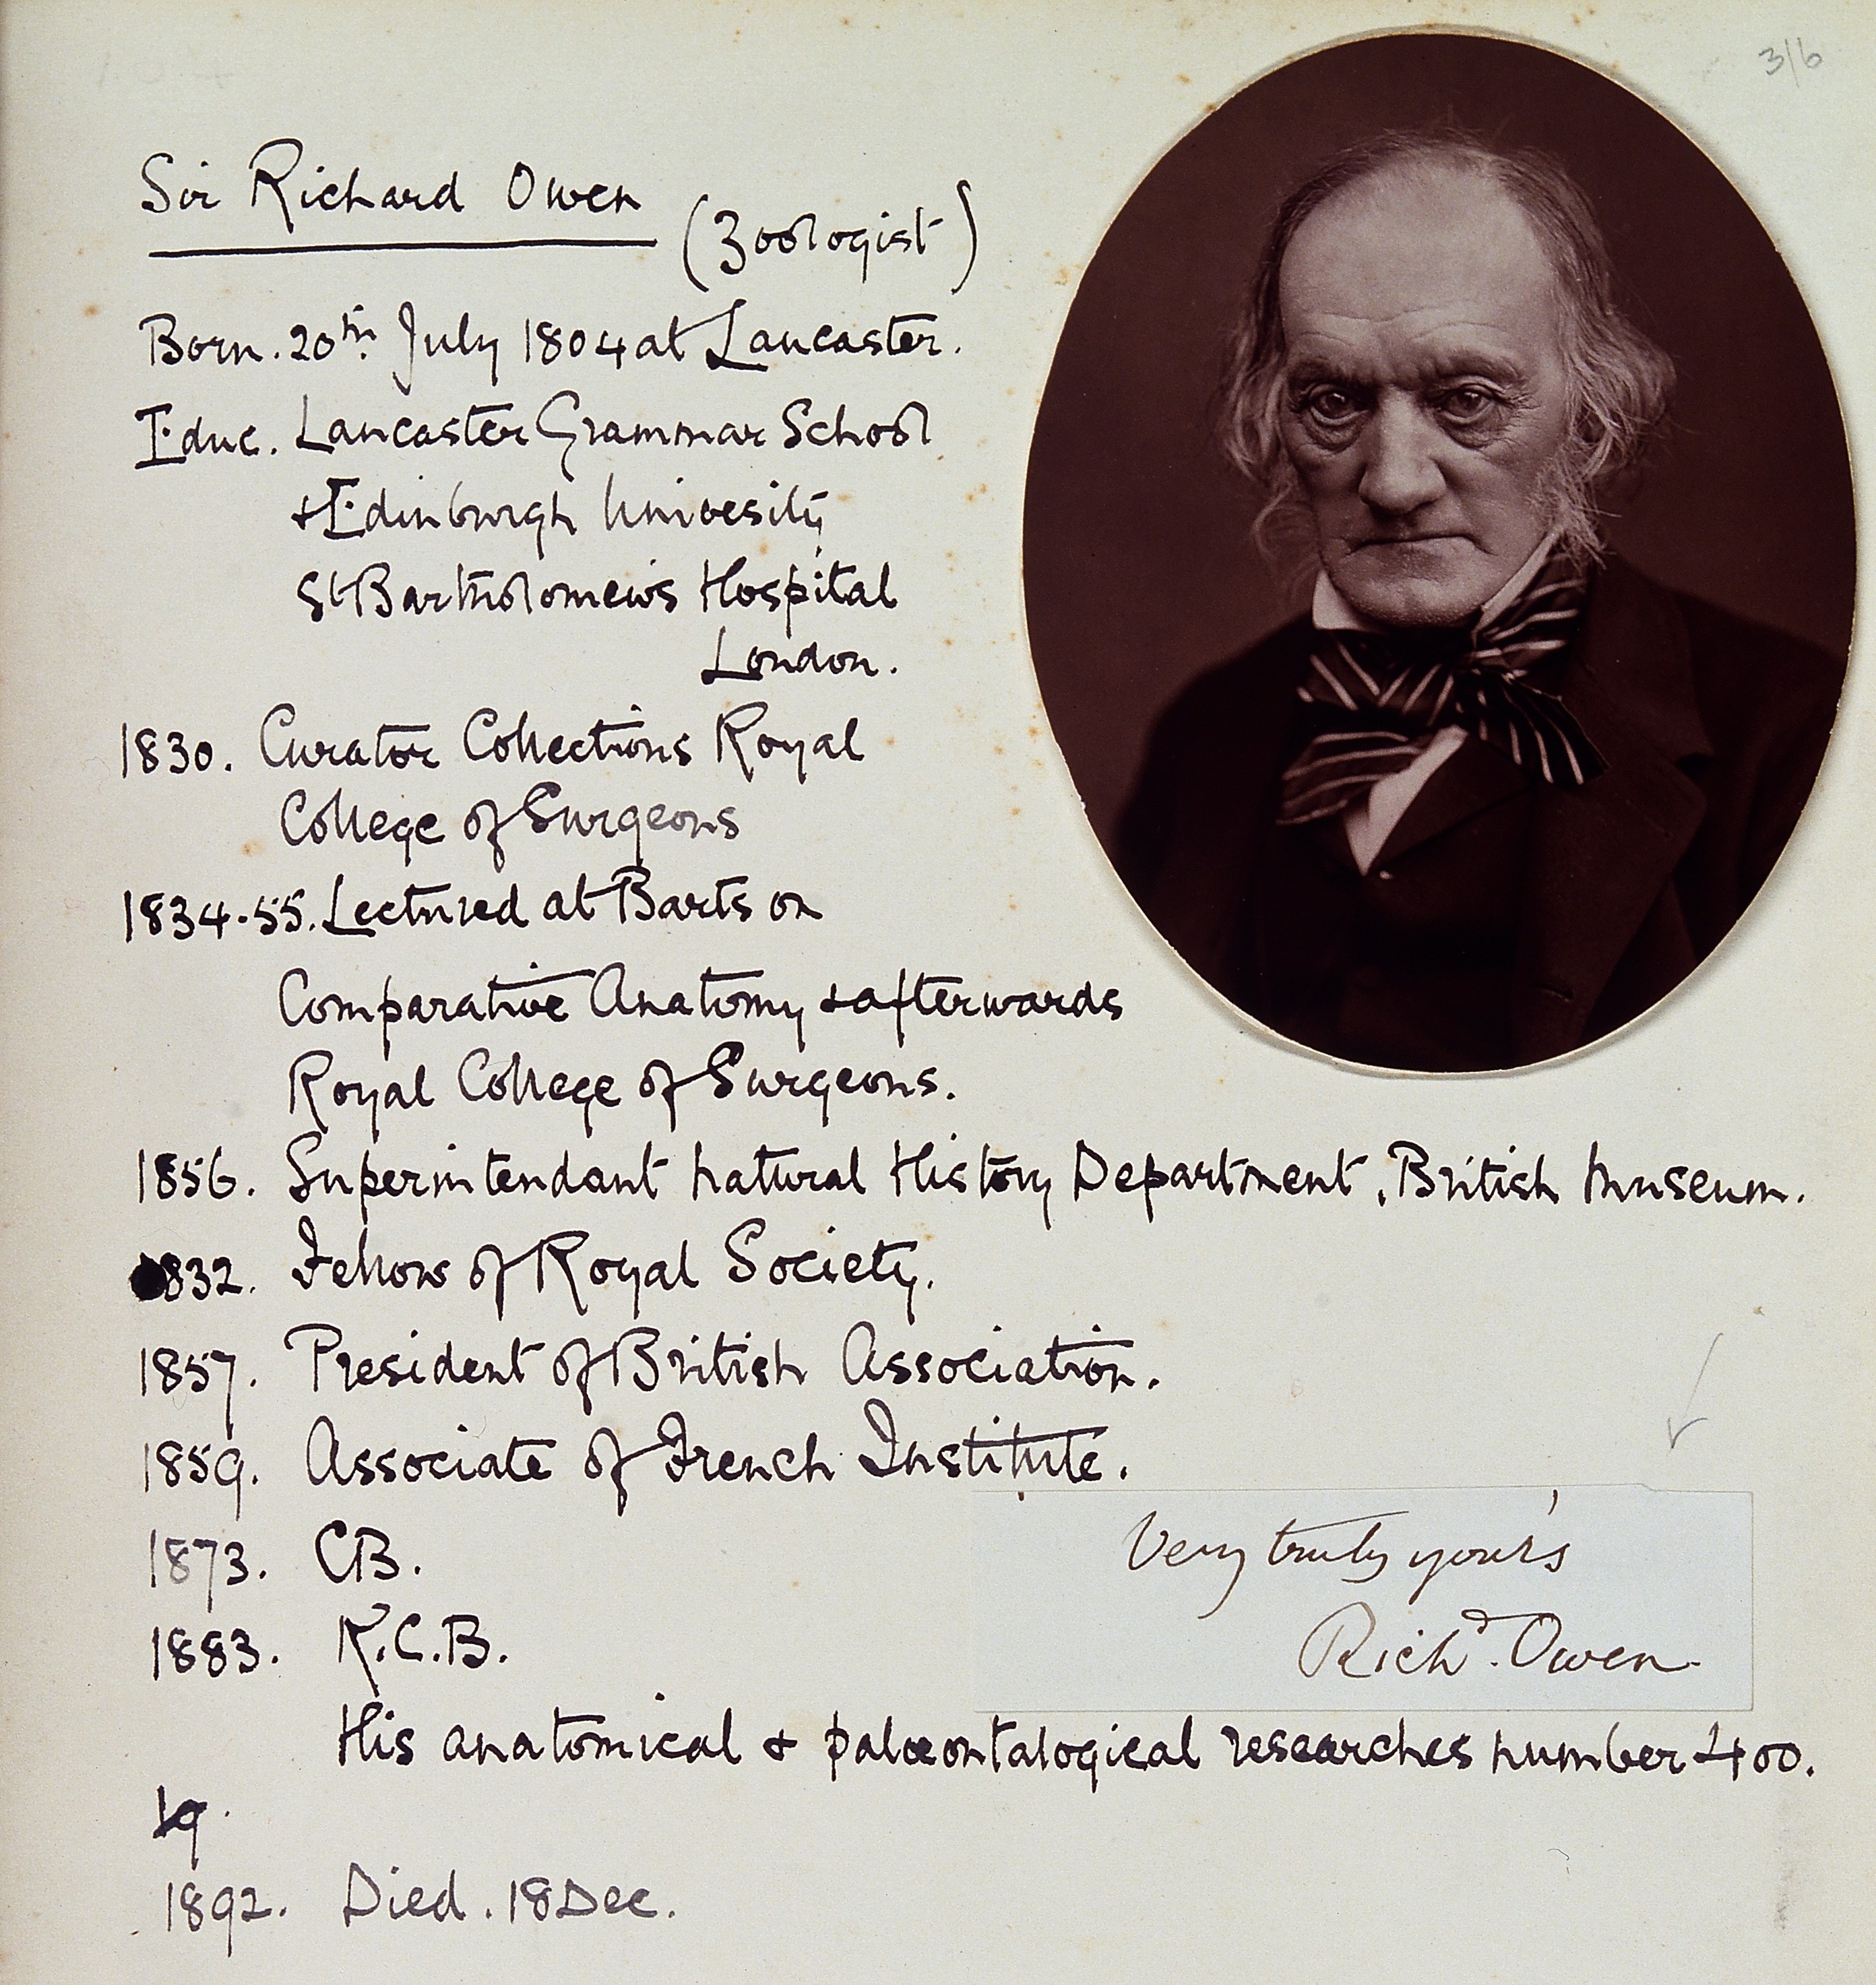 3/6
Sir Richard Owen (Zoologist)
Born. 20th. July 1804 at Lancaster.
Educ. Lancaster Grammar School
+ Edinburgh Univesity
St Bartholomews Hospital
London.
1830. Curator Collections Royal
College of Surgeons
1834-55. Lectured at Barts on
Comparative Anatomy + afterwards
Royal College of Surgeons.
1856. Superintendant Natural History Department, British Museum.
1832. Fellow of Royal Society.
1857. President of British Association.
1859. Associate of French Institute.
1873. CB.
1883. K.C.B.
Very truly yours
Richd. Owen
His anatomical + palœontalogical researches number 400.
19.
1892. Died. 18 Dec.